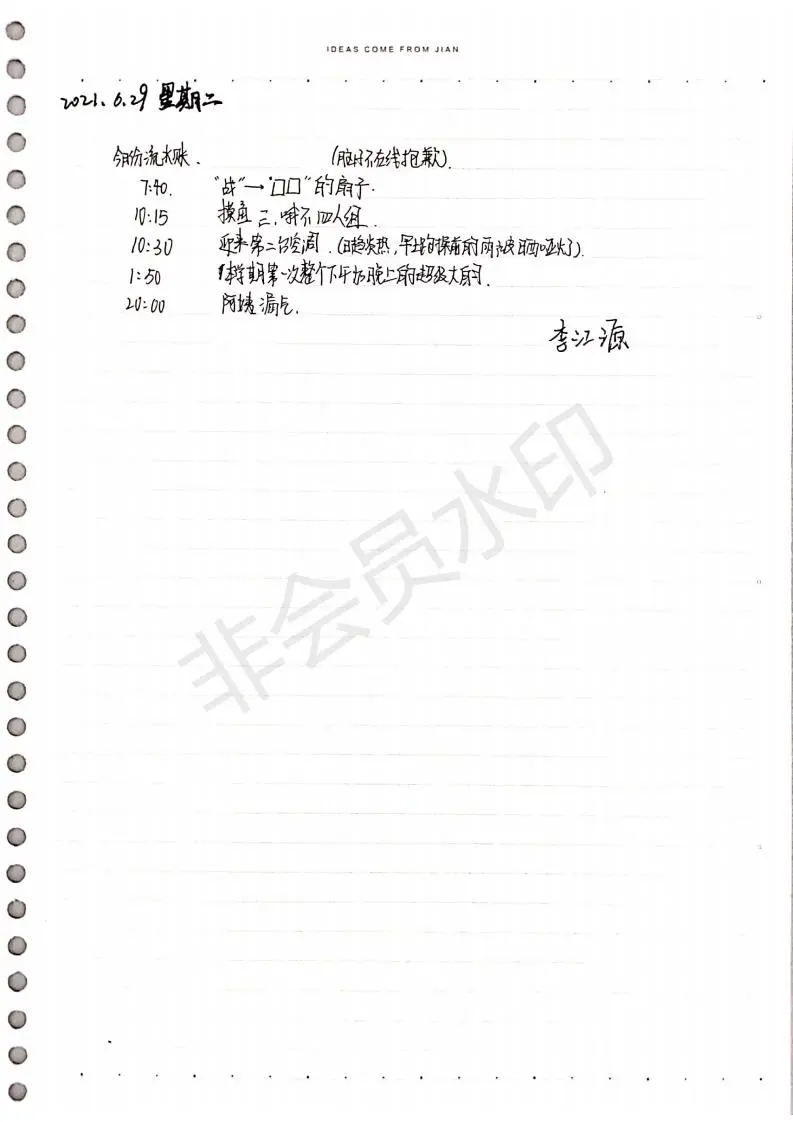 IDEAS COME FROM JIAN
2021.6.29 星期二
今份流水账. (脑子不在线抱歉).
7:40. "战"→"口口"的扇子.
10:15 摸鱼三、哦不四人组.
10:30 迎来第二台空调. (日趋炎热,
1:50 本学期第一次整个下午加晚上的超级大自习.
20:00 阿姨漏气.
李江源
非会员水印